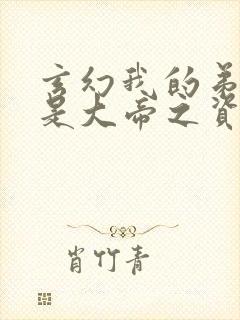 玄幻我的弟
是大帝之资
肖竹青